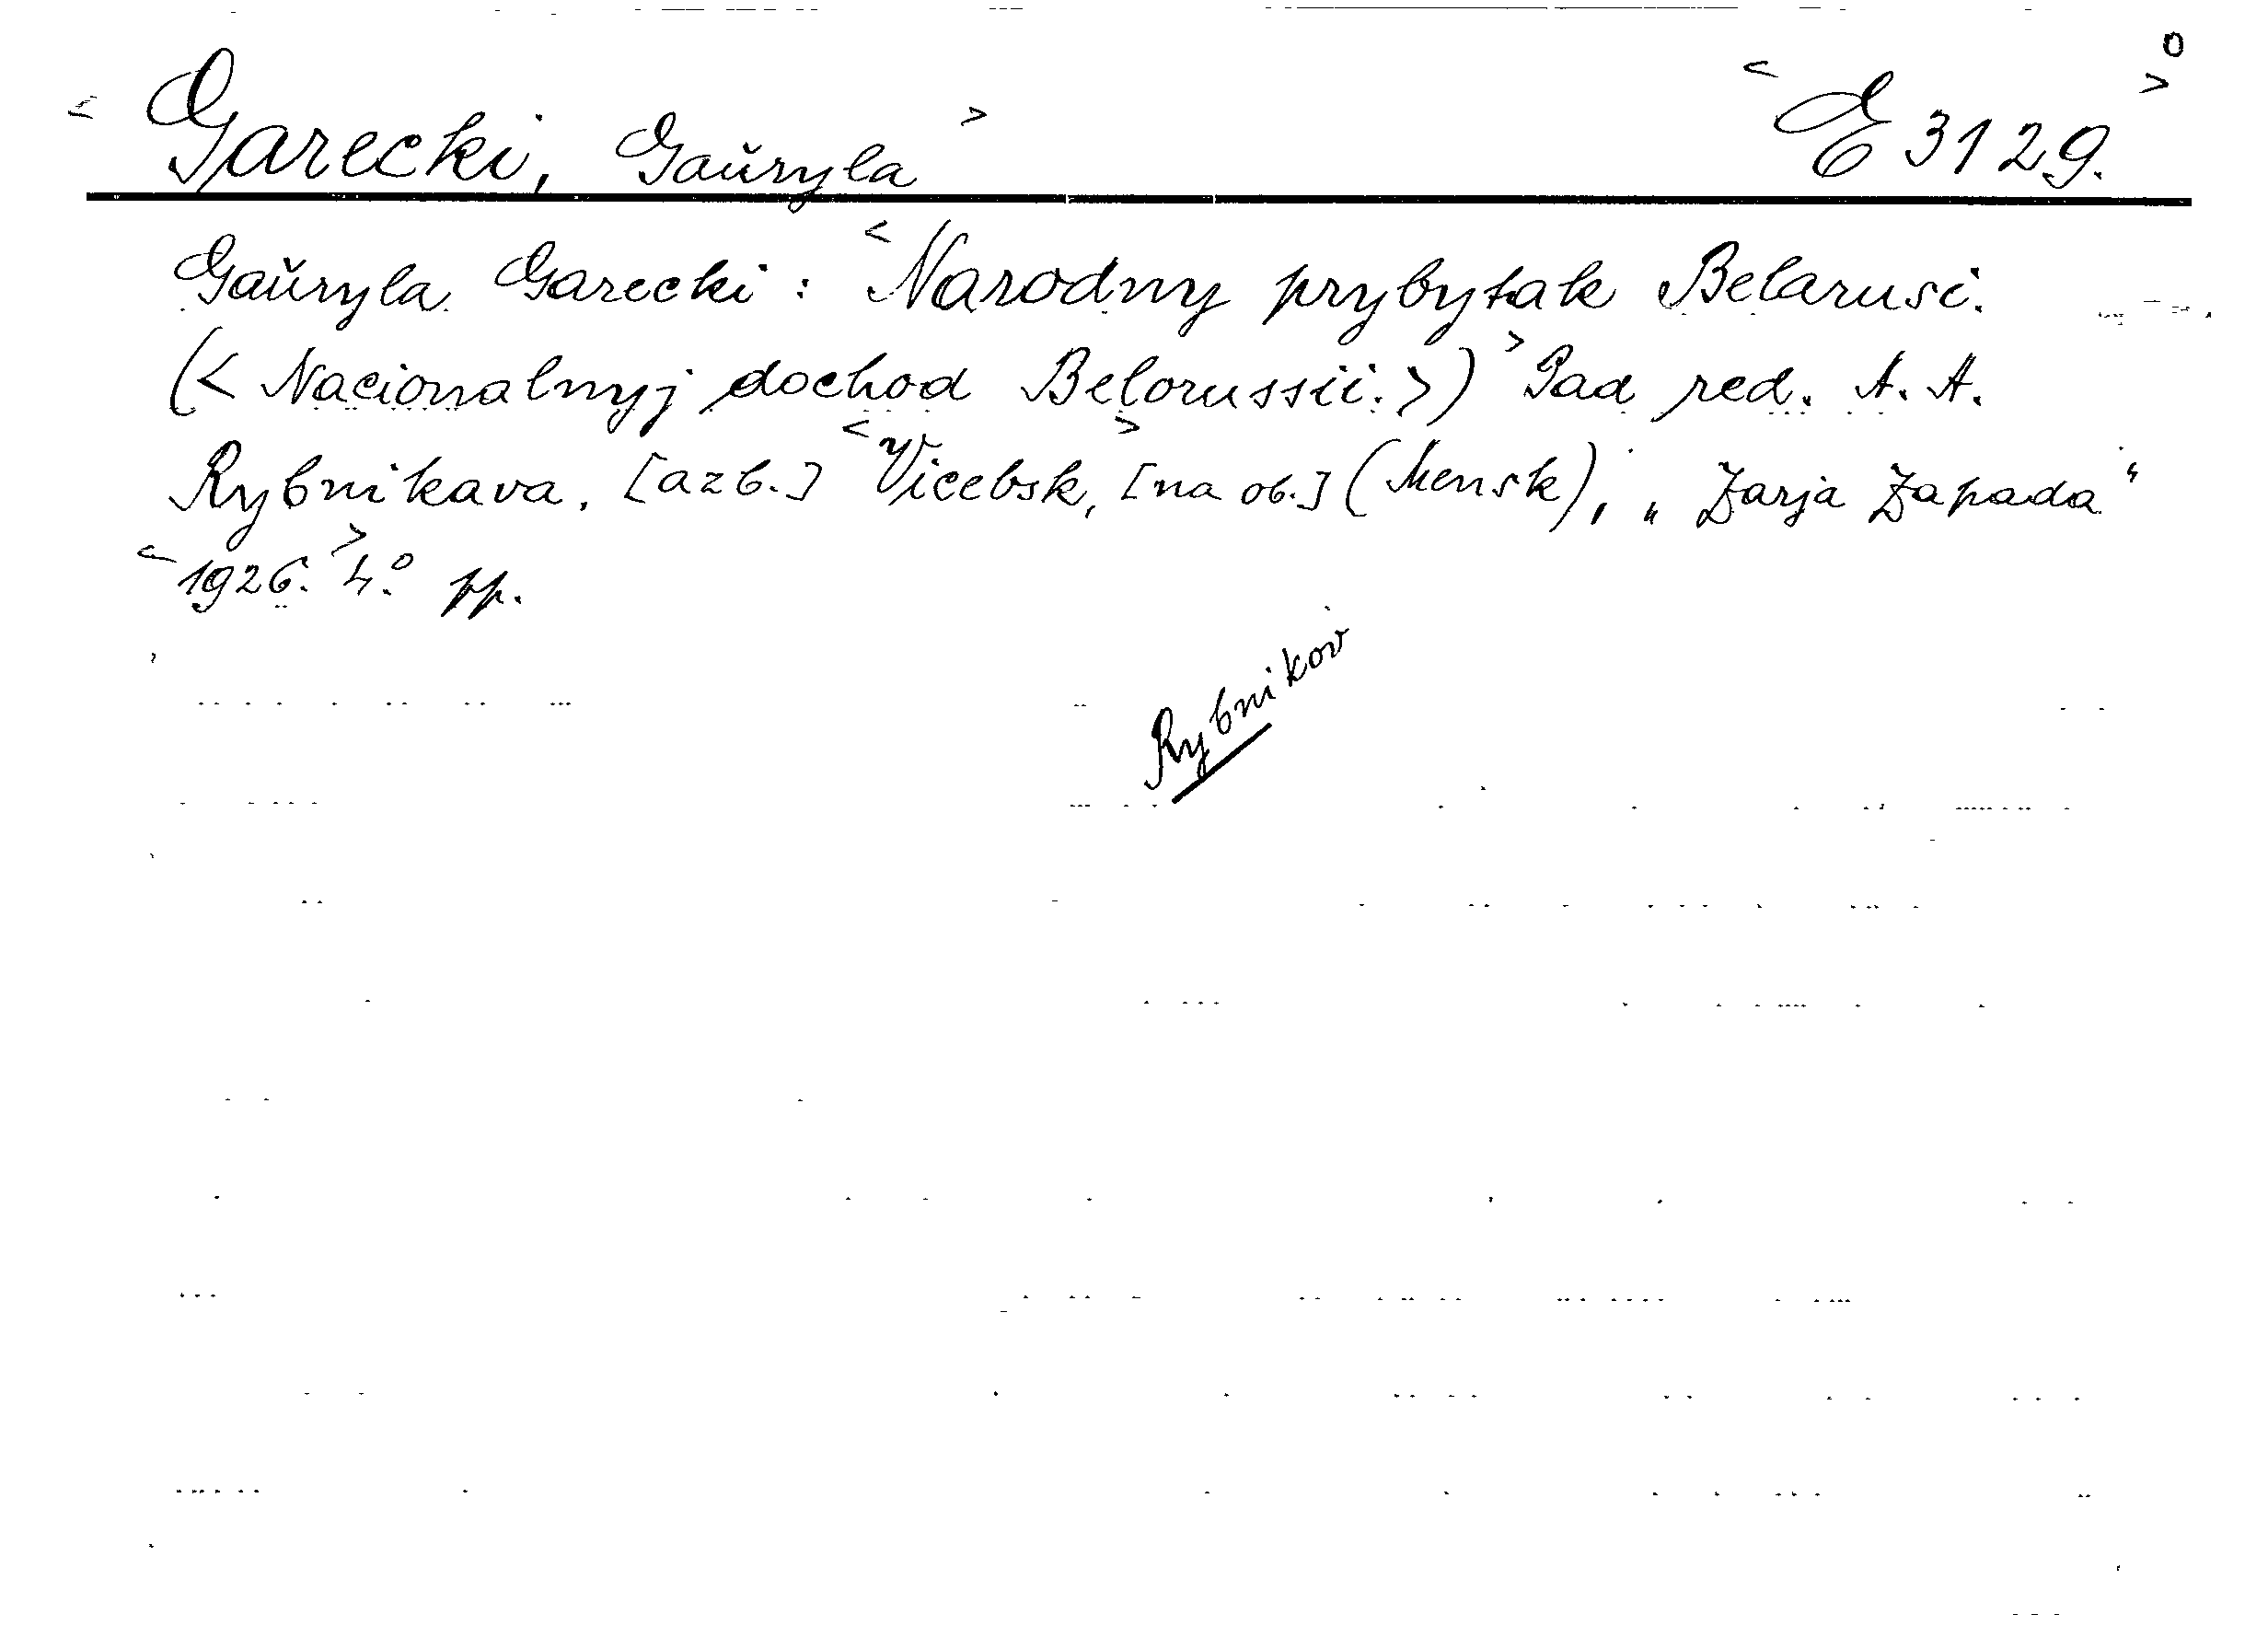 0
< Garecki, Gaŭryla > < E 3129. >
Gaŭryla Garecki: < Narodny prybytak Belarusi.
(< Nacionalnyj dochod Belorussii. >) > Pad red. A. A.
Rybnikava. [azb.] < Vicebsk, > [na ob.] (Mensk), „Zarja Zapada“
< 1926. > 4.° pp.
Rybnikov